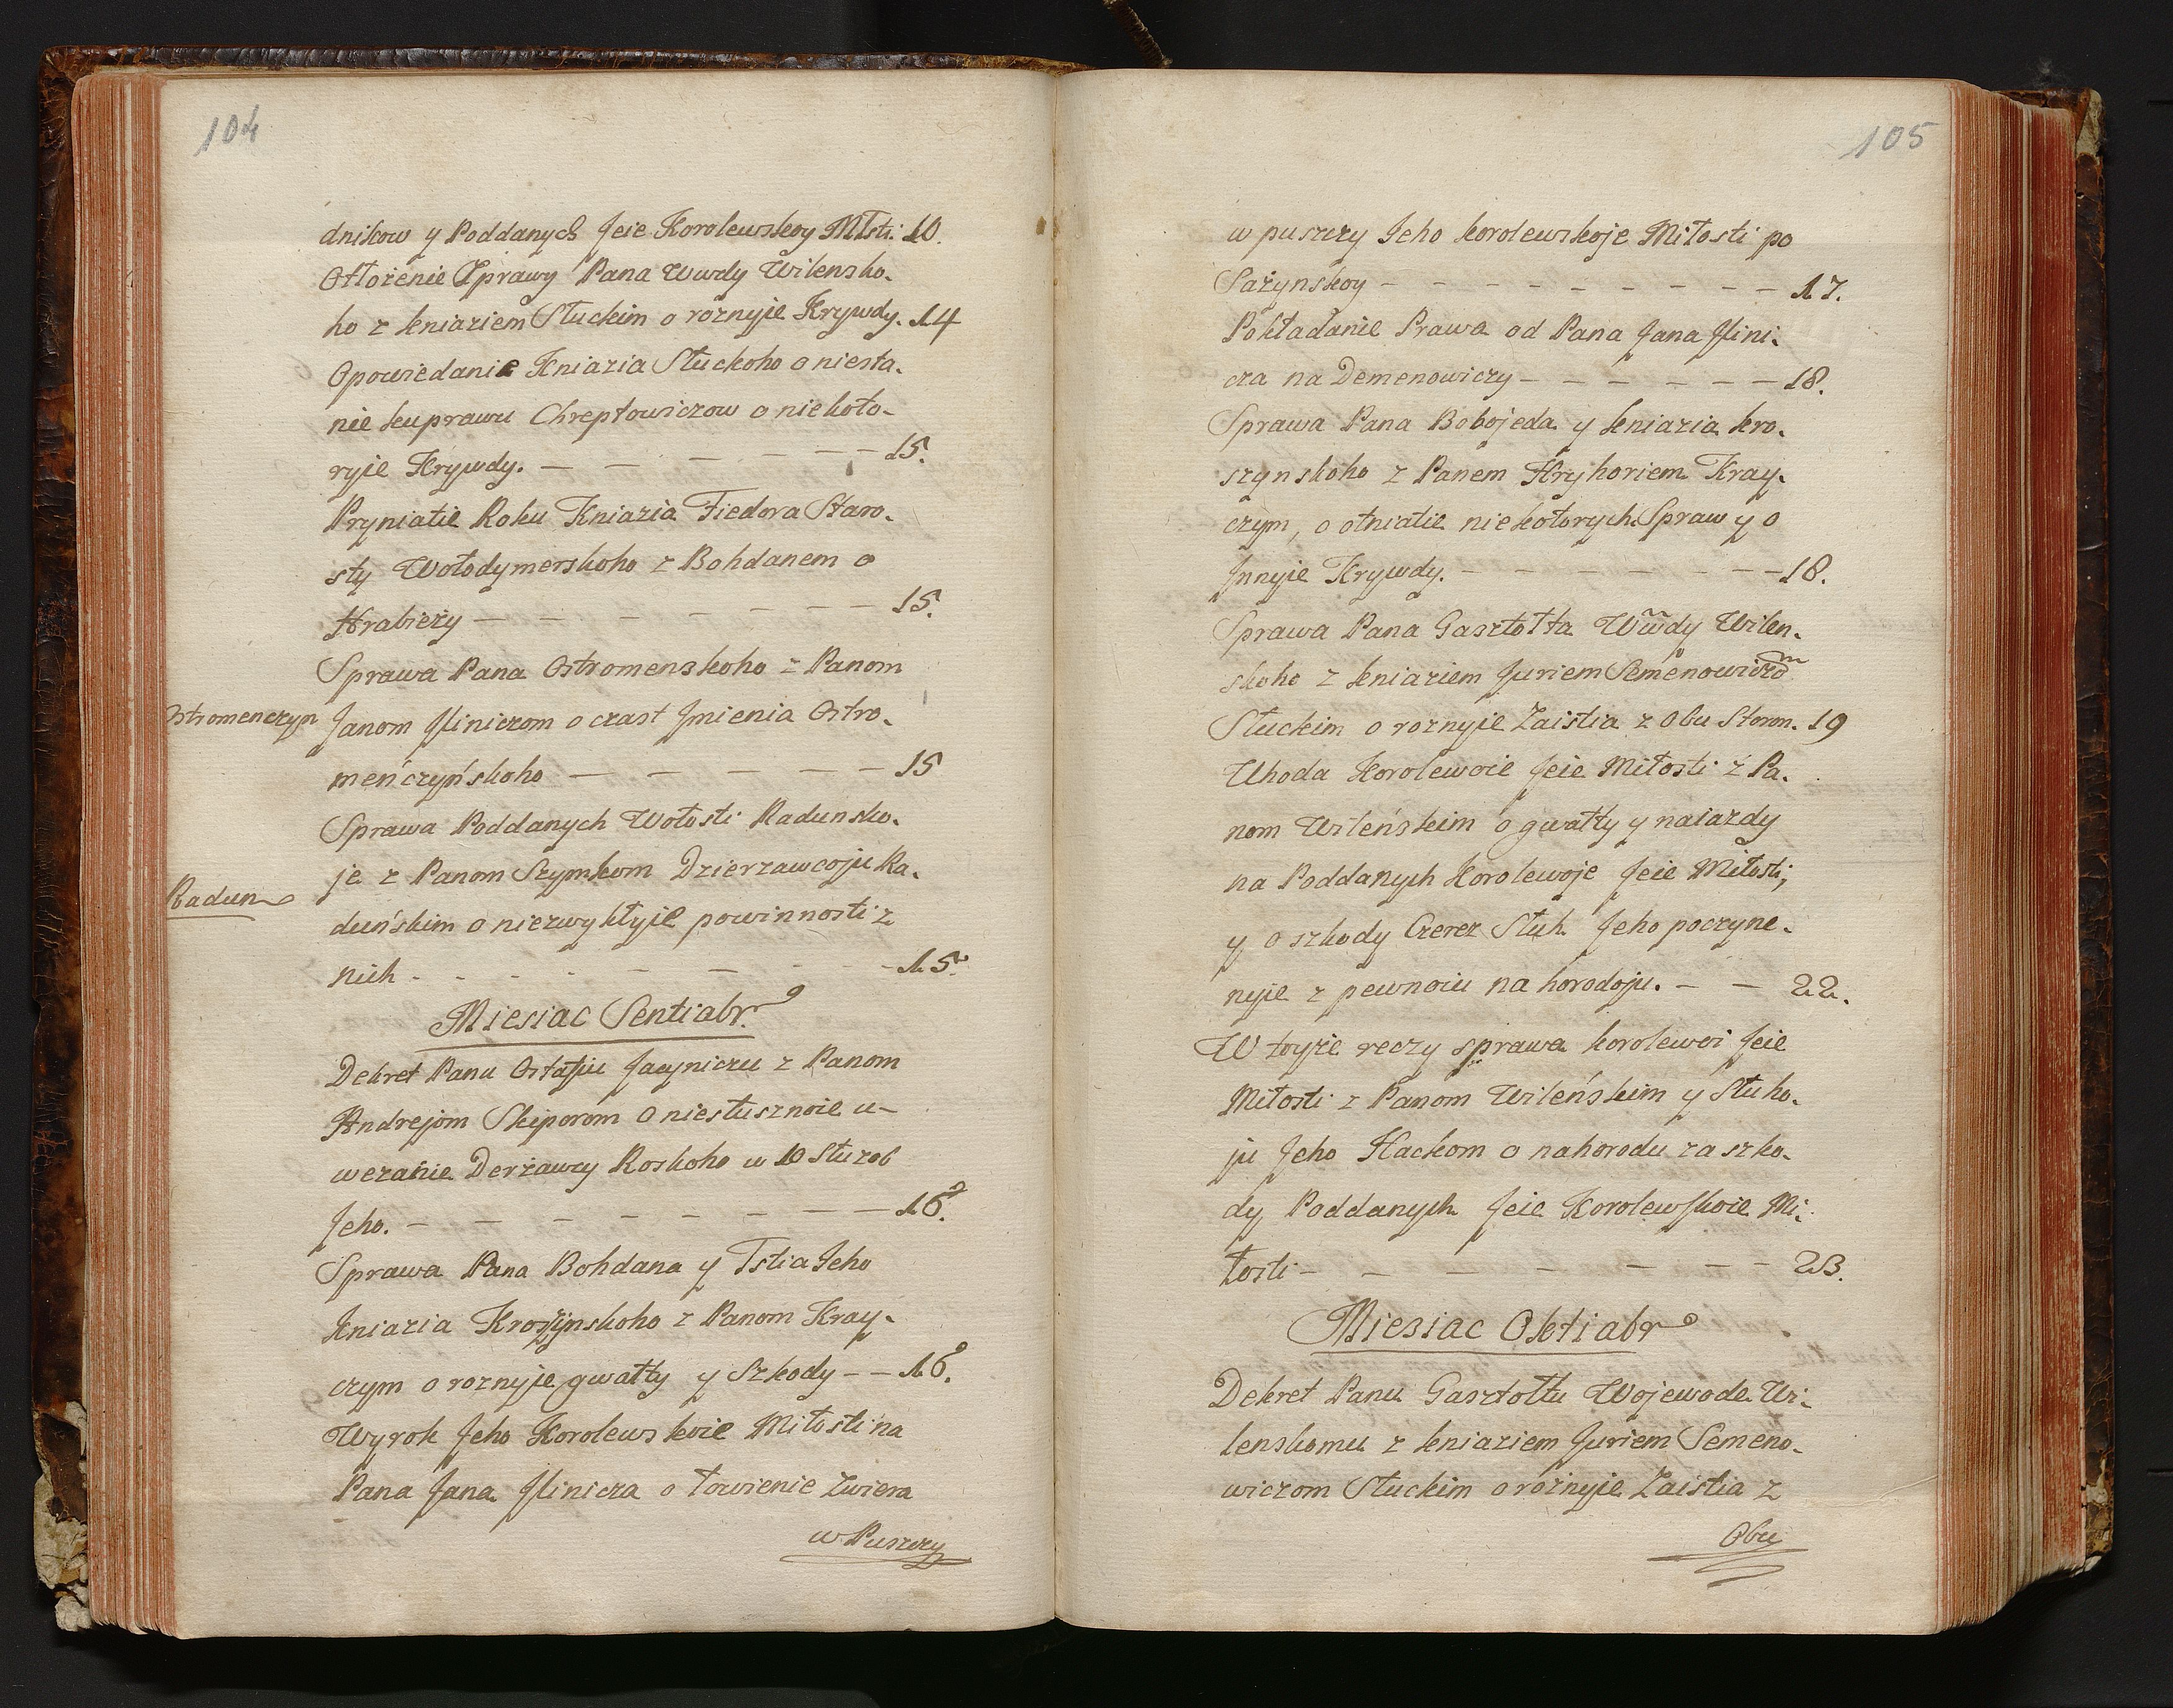 104
dnikow y Poddanych Jeie Korolewskoy Młsti. 10.
Otłożenie Sprawy Pana Wwdy Wilensko-
ho z kniaziem Słuckim o roznyje Krywdy. 14
Opowiedanie Kniazia Słuckoho o niesta-
nie kuprawu Chreptowiczow o niekoto-
ryje Krywdy. — — — — — — 15.
Pryniatie Roku Kniazia Fiedora Staro-
sty Wołodymerskoho z Bohdanem o
Hrabieży — — — — — — — 15.
Sprawa Pana Ostromenskoho z Panom
Ostromenczyn
Janom Iliniczom o czast Jmienia Ostro-
meńczyńskoho — — — — — — 15
Sprawa Poddanych Wołosti Radunsko-
je z Panom Szymkom Dzierzawcoju Ra-
Radun
duńskim o niezwykłyje powinnosti z
nich - - - - - - - - 15.
Miesiac Sentiabr.
Dekret Panu Ostafiu Jacyniczu z Panom
Andrejom Skiporom o niesłusznoie u-
wezanie Derżawcy Roskoho w 10 Służob
Jeho. — — — — — — — — 16.
Sprawa Pana Bohdana y Tstia Jeho
kniazia Kroszynskoho z Panom Kray-
czym o roznyje gwałty y Szkody — — 16.
Wyrok Jeho Korolewskoie Miłosti na
Pana Jana Ilinicza o łowienie Zwiera
w Puszczy
105
w puszczy Jeho korolewskoje Miłosti po
Sażynskoy — — — — — — — — 17.
Pokładanie Prawa od Pana Jana Ilini-
cza na Demenowiczy — — — — — — 18.
Sprawa Pana Bobojeda y kniazia kro-
szynskoho z Panem Hryhoriem Kray-
czym, o otniatie niekotorych Spraw y o
Jnnyie Krywdy. — — — — — — — 18.
Sprawa Pana Gasztołta Wwdy Wilen-
skoho z kniaziem Juriem Semenowiczom
Słuckim o roznyie Zaistia z obu Storon. 19
Uhoda Korolewoie Jeie Miłosti z Pa-
nom Wileńskim o gwałty y naiazdy
na Poddanych Korolewoje Jeie Miłosti,
y o szkody Czerez Słuh Jeho poczyne-
nyie z pewnoiu nahorodoju. — — 22.
W toyże reczy sprawa korolewoi Jeie
Miłosti z Panom Wileńskim y Słuho-
ju Jeho Hackom o nahorodu za szko-
dy Poddanych Jeie Korolewskoie Mi-
łosti — — — — — — — 23.
Miesiac Oktiabr
Dekret Panu Gasztołtu Wojewode Wi-
lenskomu z kniaziem Juriem Semeno-
wiczom Słuckim o rożnyie Zaistia z
Obu